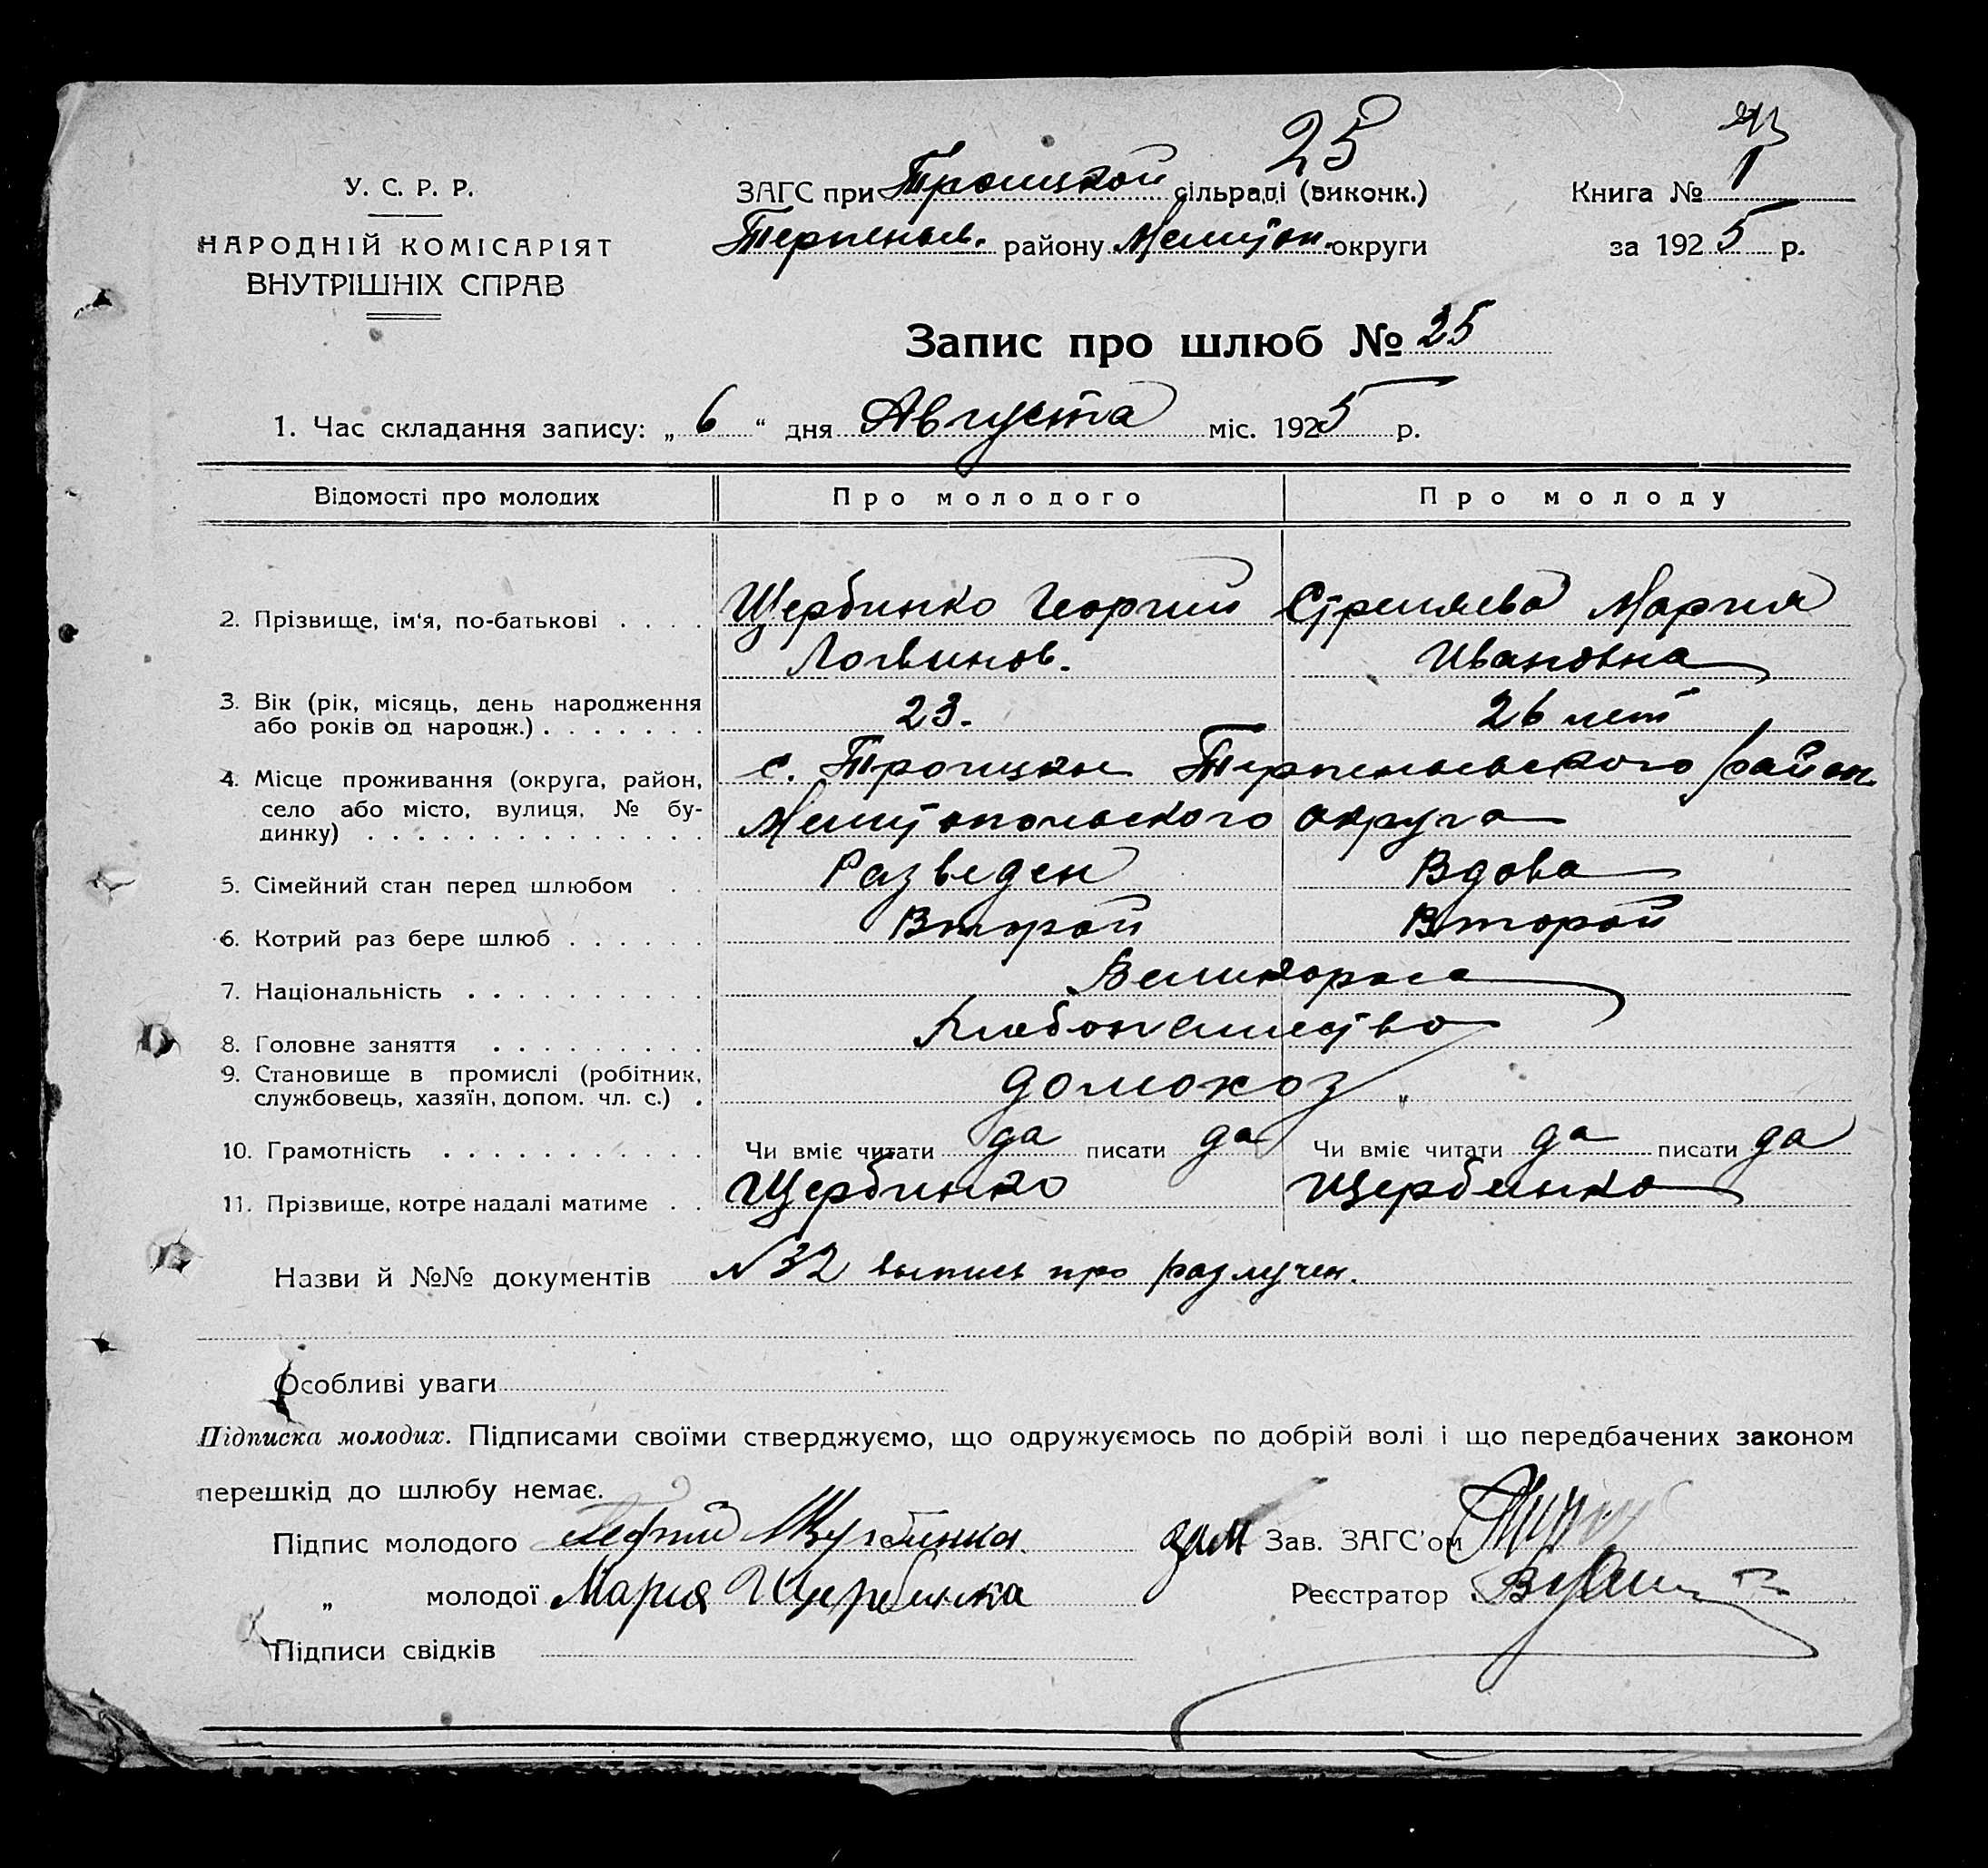 25
У. С. Р. Р.
НАРОДНІЙ КОМІСАРІЯТ
ВНУТРІШНІХ СПРАВ
ЗАГС при Троицкой сільраді (виконк.)
Терпеньев. району Мелитоп. округи
Книга № 1
за 1925 р.
Запис про шлюб № 25
1. Час складання запису: „ 6 “ дня Августа міс. 1925 р.
Відомості про молодих Про молодого Про молоду
2. Прізвище, ім'я, по-батькові . . . . Щербинко Георгий Стреляева Мария
Логвинов. Ивановна
3. Вік (рік, місяць, день народження
або років од народж.) . . . . . . . 23. 26 лет
4. Місце проживання (округа, район, с. Троицкое Терпеньевского район.
село або місто, вулиця, № бу-
динку) . . . . . . . . . . . . . . Мелитопольского округа
5. Сімейний стан перед шлюбом . . Разведен Вдова
6. Котрий раз бере шлюб . . . . . . Второй Второй
7. Національність . . . . . . . . . . Великоросс
8. Головне заняття . . . . . . . . . Хлебопашество
9. Становище в промислі (робітник,
службовець, хазяїн, допом. чл. с.) . домохоз „
10. Грамотність . . . . . . . . . . . Чи вміє читати да писати да Чи вміє читати да писати да
11. Прізвище, котре надалі матиме . . Щербинко Щербинко
Назви й №№ документів №32 выпись про разлучен.
Особливі уваги
Підписка молодих. Підписами своїми стверджуємо, що одружуємось по добрій волі і що передбачених законом
перешкід до шлюбу немає.
Підпис молодого Щербинка зам Зав. ЗАГС'ом
„ молодої Мария Щербинка Реєстратор
Підписи свідків